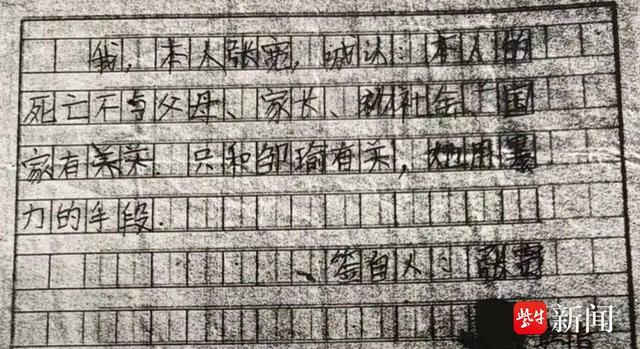 我,本人张宽,诚认:本人的
死亡不与父母、家长、和社会、国
家有关关.只和邹瑜有关,她用暴
力的手段.
签自人:张宽
紫牛新闻